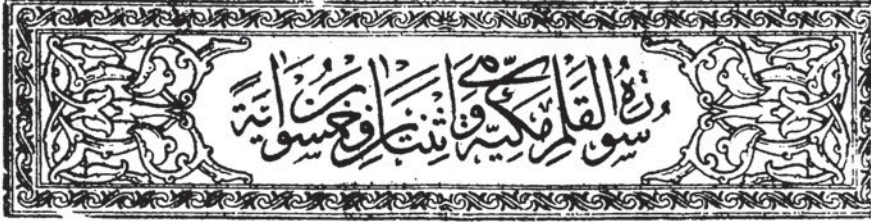 سُورَةُ الْقَلَمِ مَكِّيَّةٌ وَهِيَ اثْنَتَانِ وَخَمْسُونَ اٰيَةً